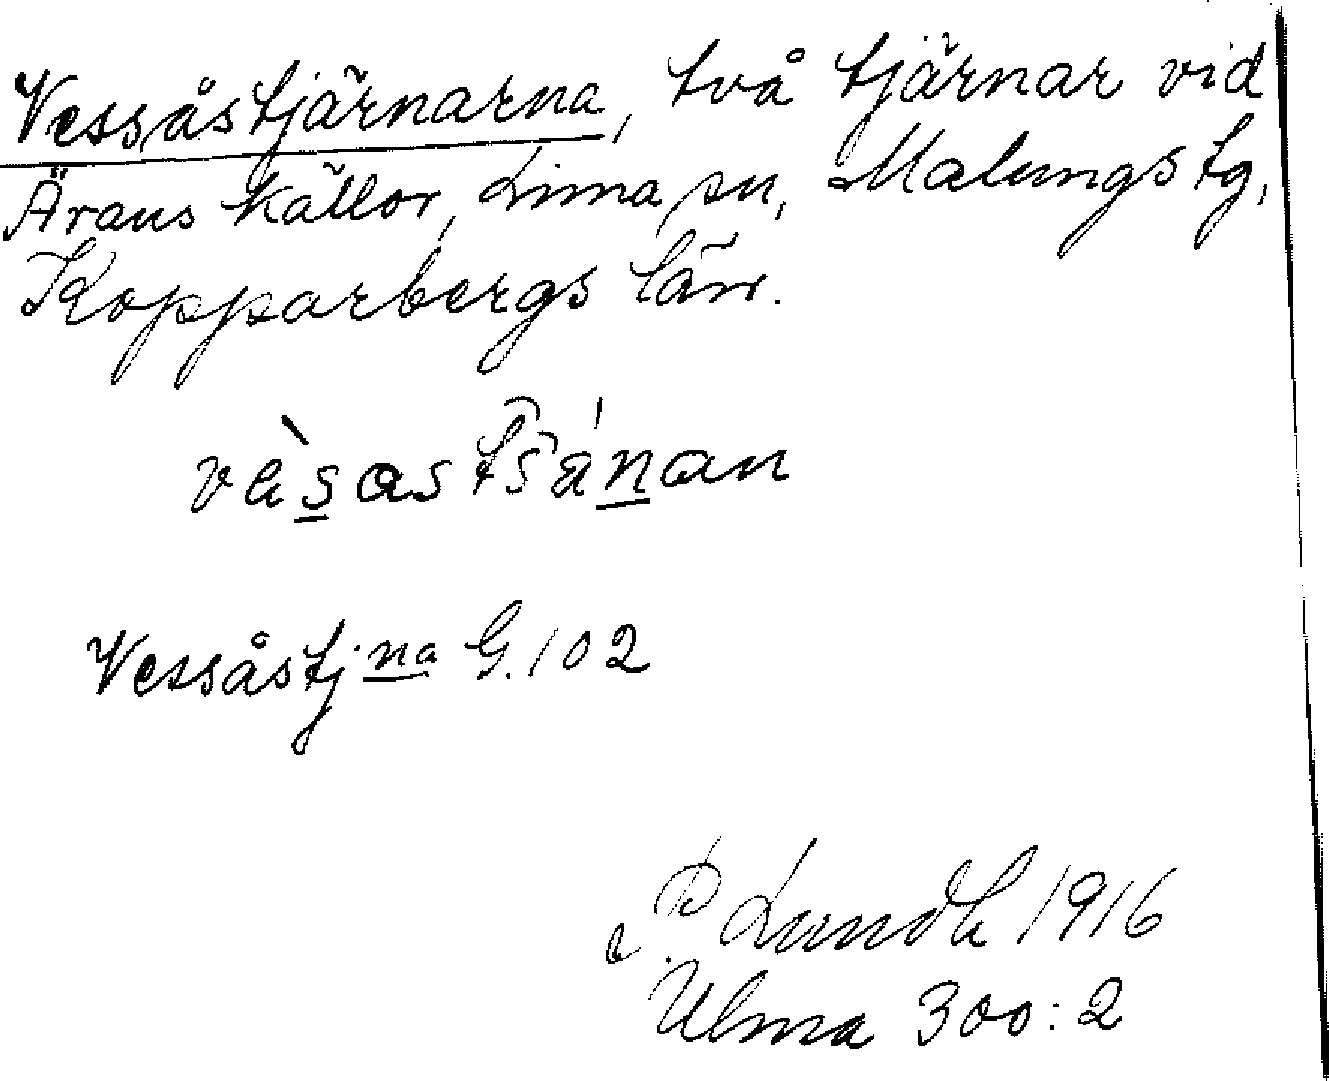 Vessåstjärnarna, två tjärnar vid
Ärans källor, Lima sn, Malungs tg,
Kopparbergs län.
vèsastšánan
Vessåstj:na G.102
P. Lundh 1916
Ulma 300:2